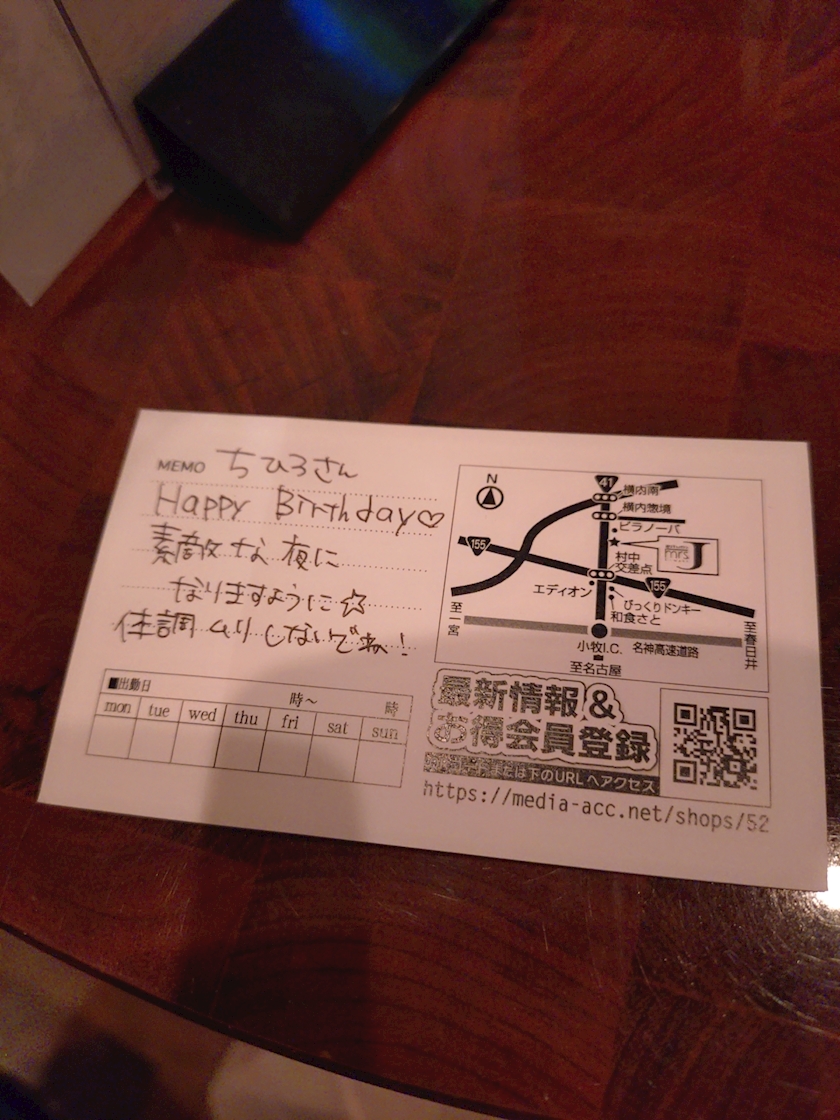 MEMO ちひろさん
Happy Birthday♡
素敵な夜に
なりますように☆
体調ムリしないでね!
■出勤日 時〜 時
mon tue wed thu fri sat sun
N
41
横内南
横内惣境
ピラノーバ
155
mrs J
村中
交差点
エディオン
155
びっくりドンキー
和食さと
至一宮
至春日井
小牧I.C. 名神高速道路
至名古屋
最新情報&
お得会員登録
または下のURLへアクセス
https://media-acc.net/shops/52